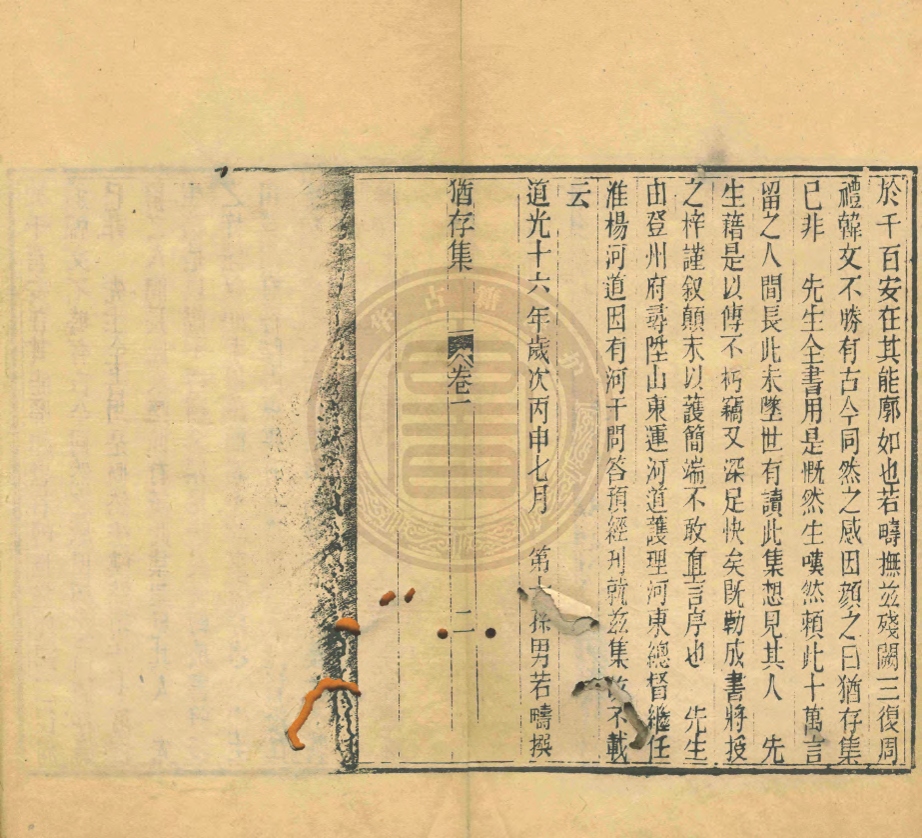 於千百安在其能廓如也若疇撫茲殘闕三復周
禮韓文不勝有古今同然之感因顔之曰猶存集
已非　先生全書用是慨然生嘆然賴此十萬言
留之人間長此未墜世有讀此集想見其人　先
生藉是以傳不朽竊又深足快矣旣勒成書將授
之梓謹叙顛末以護簡端不敢直言序也　先生
由登州府尋陞山東運河道護理河東總督繼任
淮楊河道因有河干問答預經刋就茲集故不載
云
道光十六年歲次丙申七月　第孫男若疇撰
猶存集　卷一　二